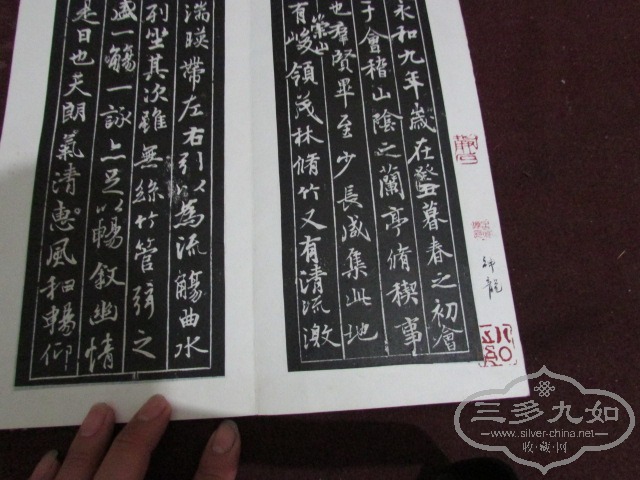 永和九年歲在癸丑暮春之初會
于會稽山陰之蘭亭脩稧事
也羣賢畢至少長咸集此地
有崇山峻領茂林脩竹又有清流激
湍暎帶左右引以為流觴曲水
列坐其次雖無絲竹管弦之
盛一觴一詠亦足以暢敘幽情
是日也天朗氣清惠風和暢仰
三多九如
www.silver-china.net
收·藏·网